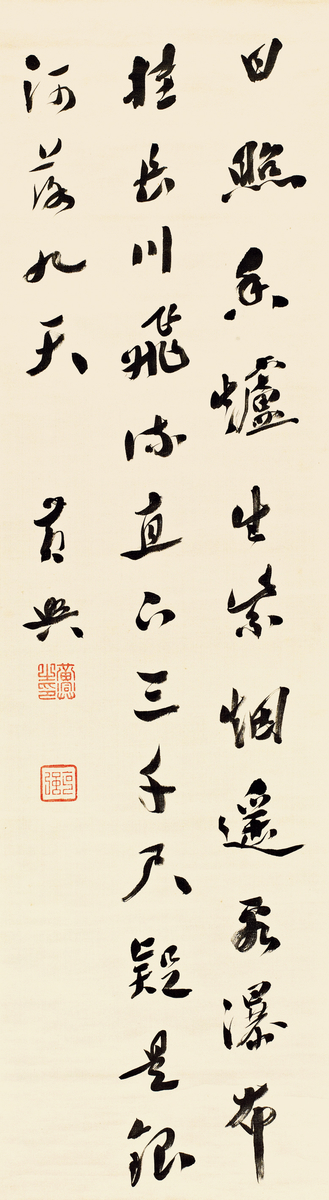 日照香爐生紫烟遥看瀑布
挂長川飛流直下三千尺疑是銀
河落九天
黄興
黃興之印
克強